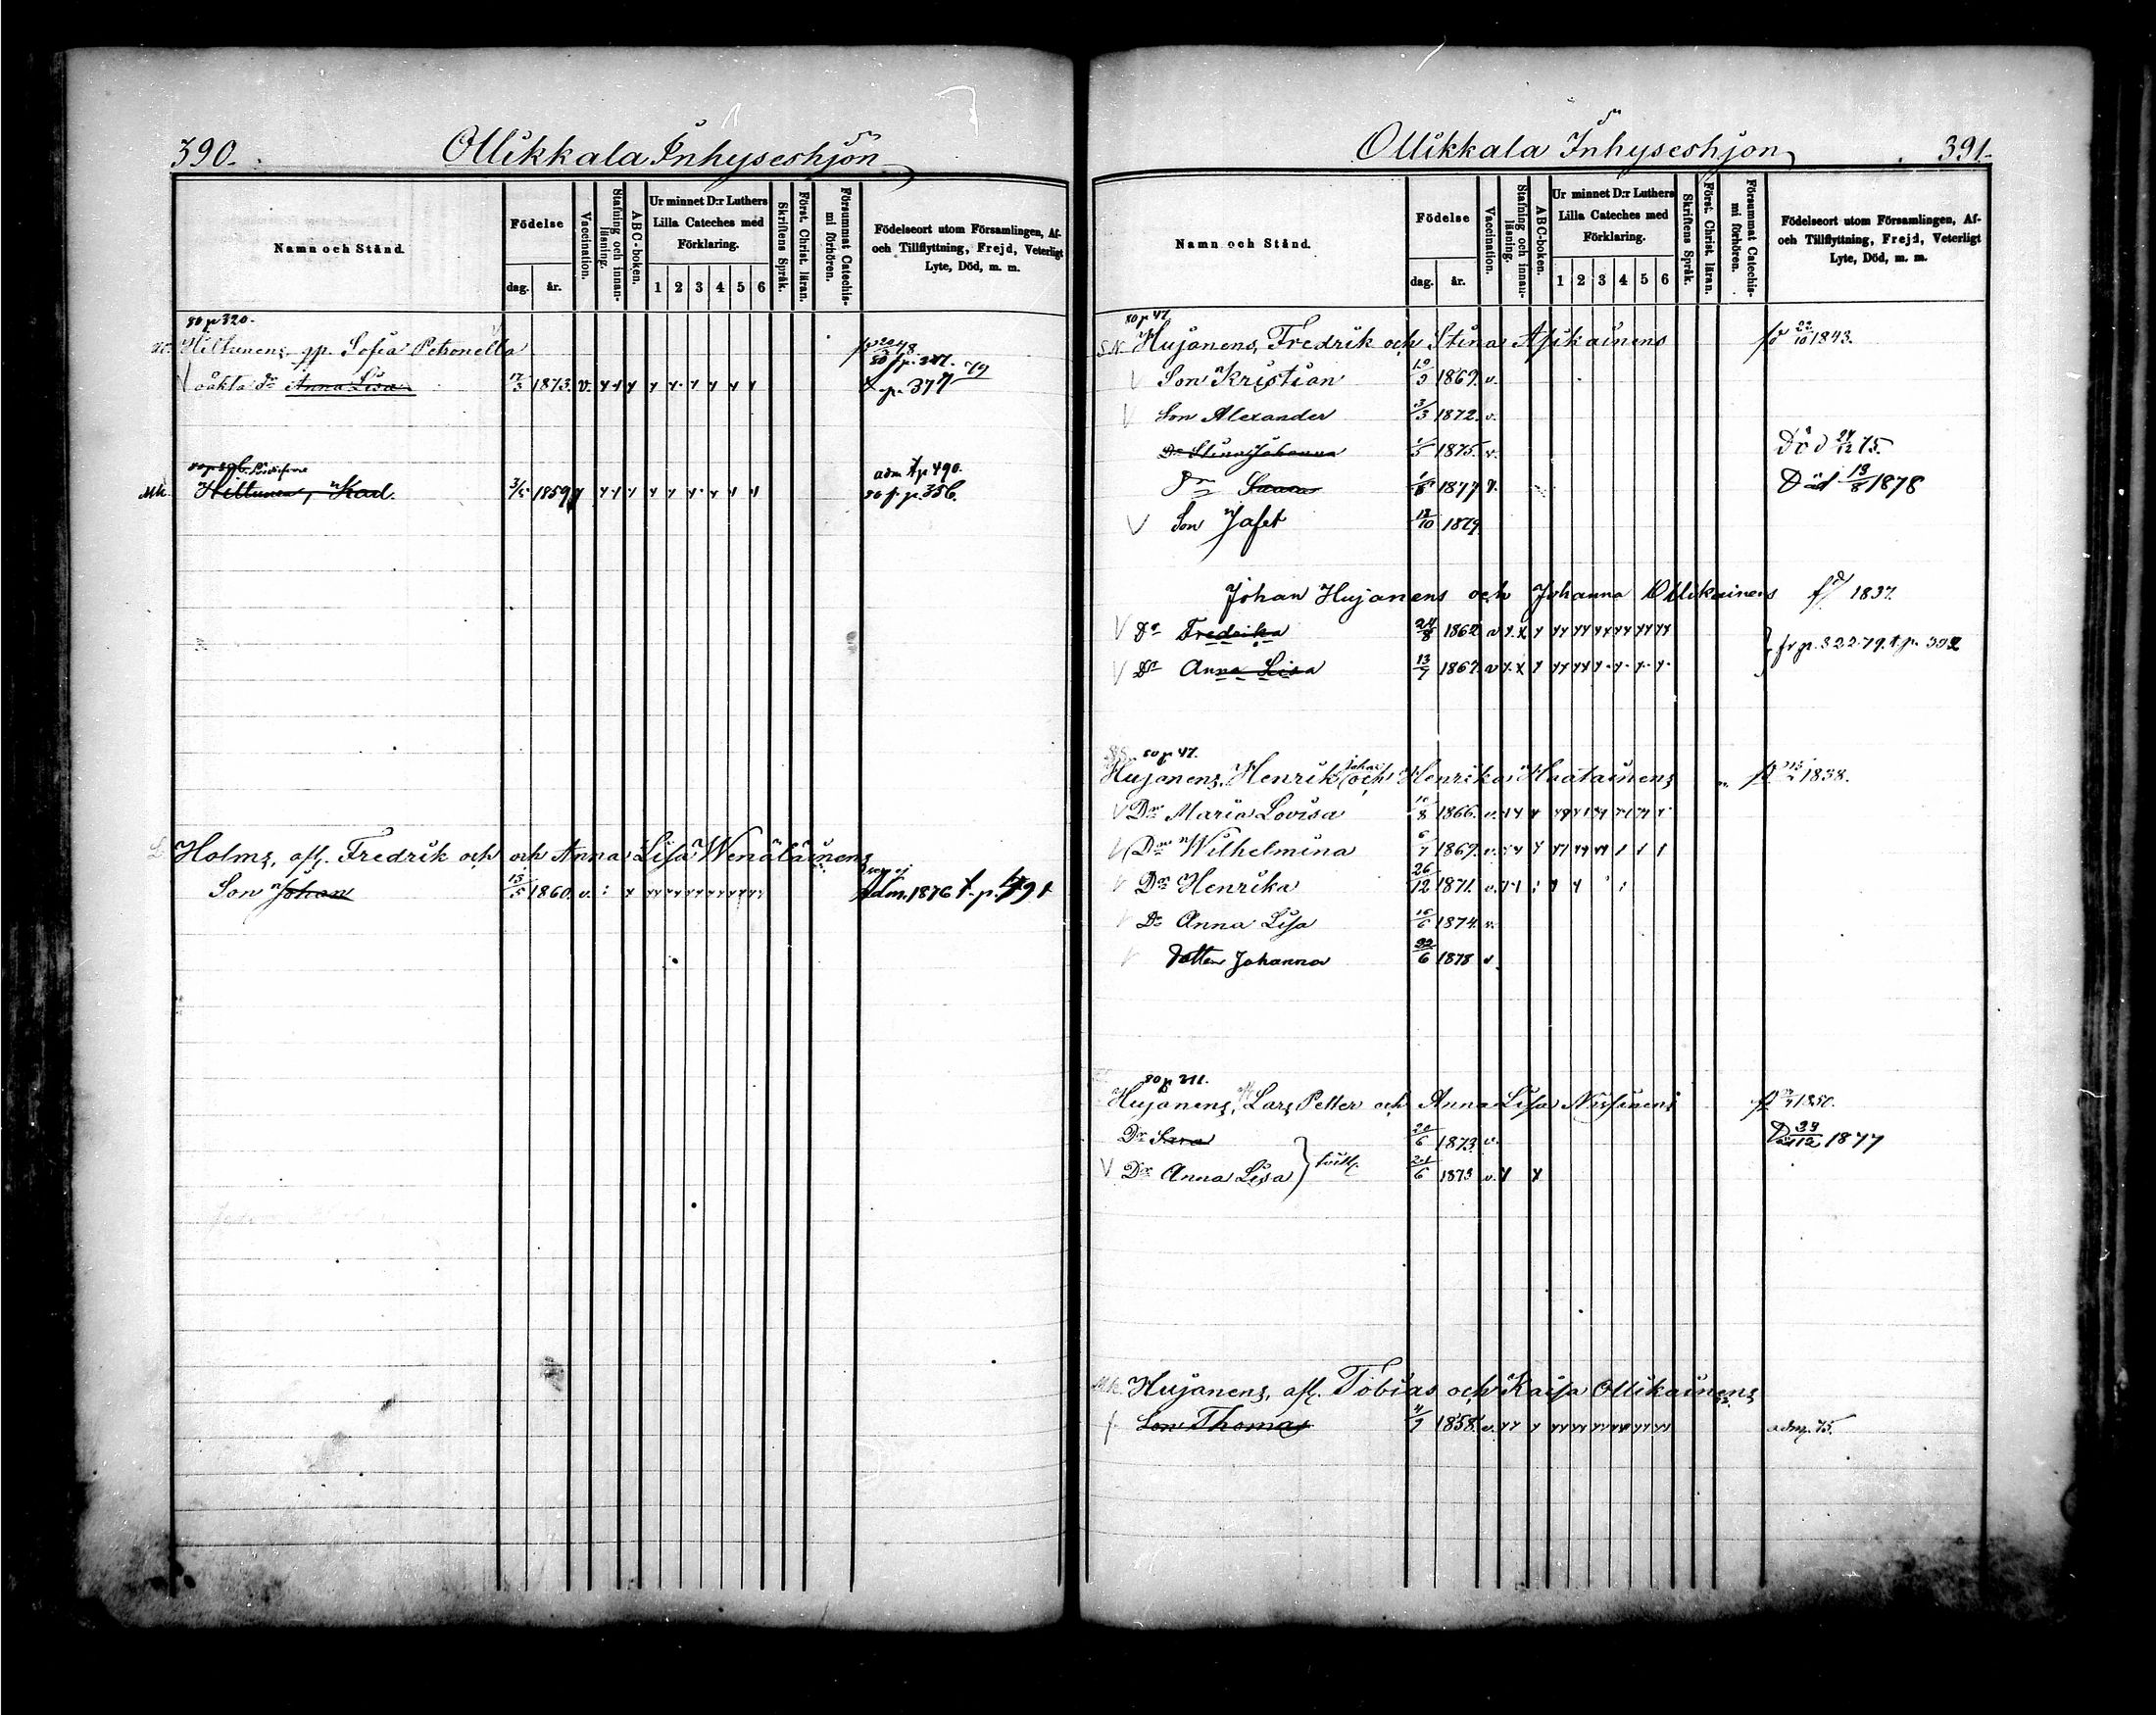 390.
Ollikkala Inhyseshjon
Namn och Stånd.
Födelse
dag.
år.
Vaccination.
Stafning och innanläsning.
ABC-boken.
Ur minnet D:r Luthers
Lilla Cateches med
Förklaring.
1 2 3 4 5 6
Skriftens Språk.
Först. Christ. läran.
Försummat Catechismi förhören.
Födelseort utom Församlingen, Af-
och Tillflyttning, Frejd, Veterligt
Lyte, Död, m. m.
80 p 320.
Hiltunens, qp. Sofia Petronella
oäkta dr Anna Lisa 17/3 1873. v. p. 377
Mk. Hiltunen, Karl. 3/5 1859
adm. p 490.
80 f. p. 356.
Holms, afl. Fredrik och och Anna Lisa Wenäläinens
Son Johan 15/5 1860. v. Adm. 1876 t. p. 491
Ollikkala Inhyseshjon
391.
Namn och Stånd.
Födelse
dag.
år.
Vaccination.
Stafning och innanläsning.
ABC-boken.
Ur minnet D:r Luthers
Lilla Cateches med
Förklaring.
1 2 3 4 5 6
Skriftens Språk.
Först. Christ. läran.
Försummat Catechismi förhören.
Födelseort utom Församlingen, Af-
och Tillflyttning, Frejd, Veterligt
Lyte, Död, m. m.
80 p 47.
Hujanens, Fredrik och Stina Asikainens 22/10 1843.
Son Kristian 1869. v.
Son Alexander 3/3 1872. v.
Dr Stina Johanna 1875. v. Död 24/12 75.
Dr Saara 1877 v. Död 13/8 1878
Son Jafet 12/10 1879
Johan Hujanens och Johanna Ollikainens 1837.
Dr Fredrika 24/8 1862 v
Dr Anna Lisa 13/7 1867. v } fr p. 322 79. t p. 392
80 p 47.
Hujanens, Henrik Johan och Henrika Haatainens 1838.
Dr Maria Lovisa 1866. v.
Dr Wilhelmina 6/7 1869. v.
Dr Henrika 26/12 1871. v.
Dr Anna Lisa 1874. v.
Dotter Johanna 22/6 1878 v
80 p 211.
Hujanens, Lars Petter och Anna Lisa Nissinens 1850.
Dr Sara 20/6 1873. v. Död 23/12 1877
Dr Anna Lisa } tvill. 20/6 1873 v.
Mk. Hujanens, afl. Tobias och Kaisa Ollikainens
Son Thomas 1858. v. adm. 75.